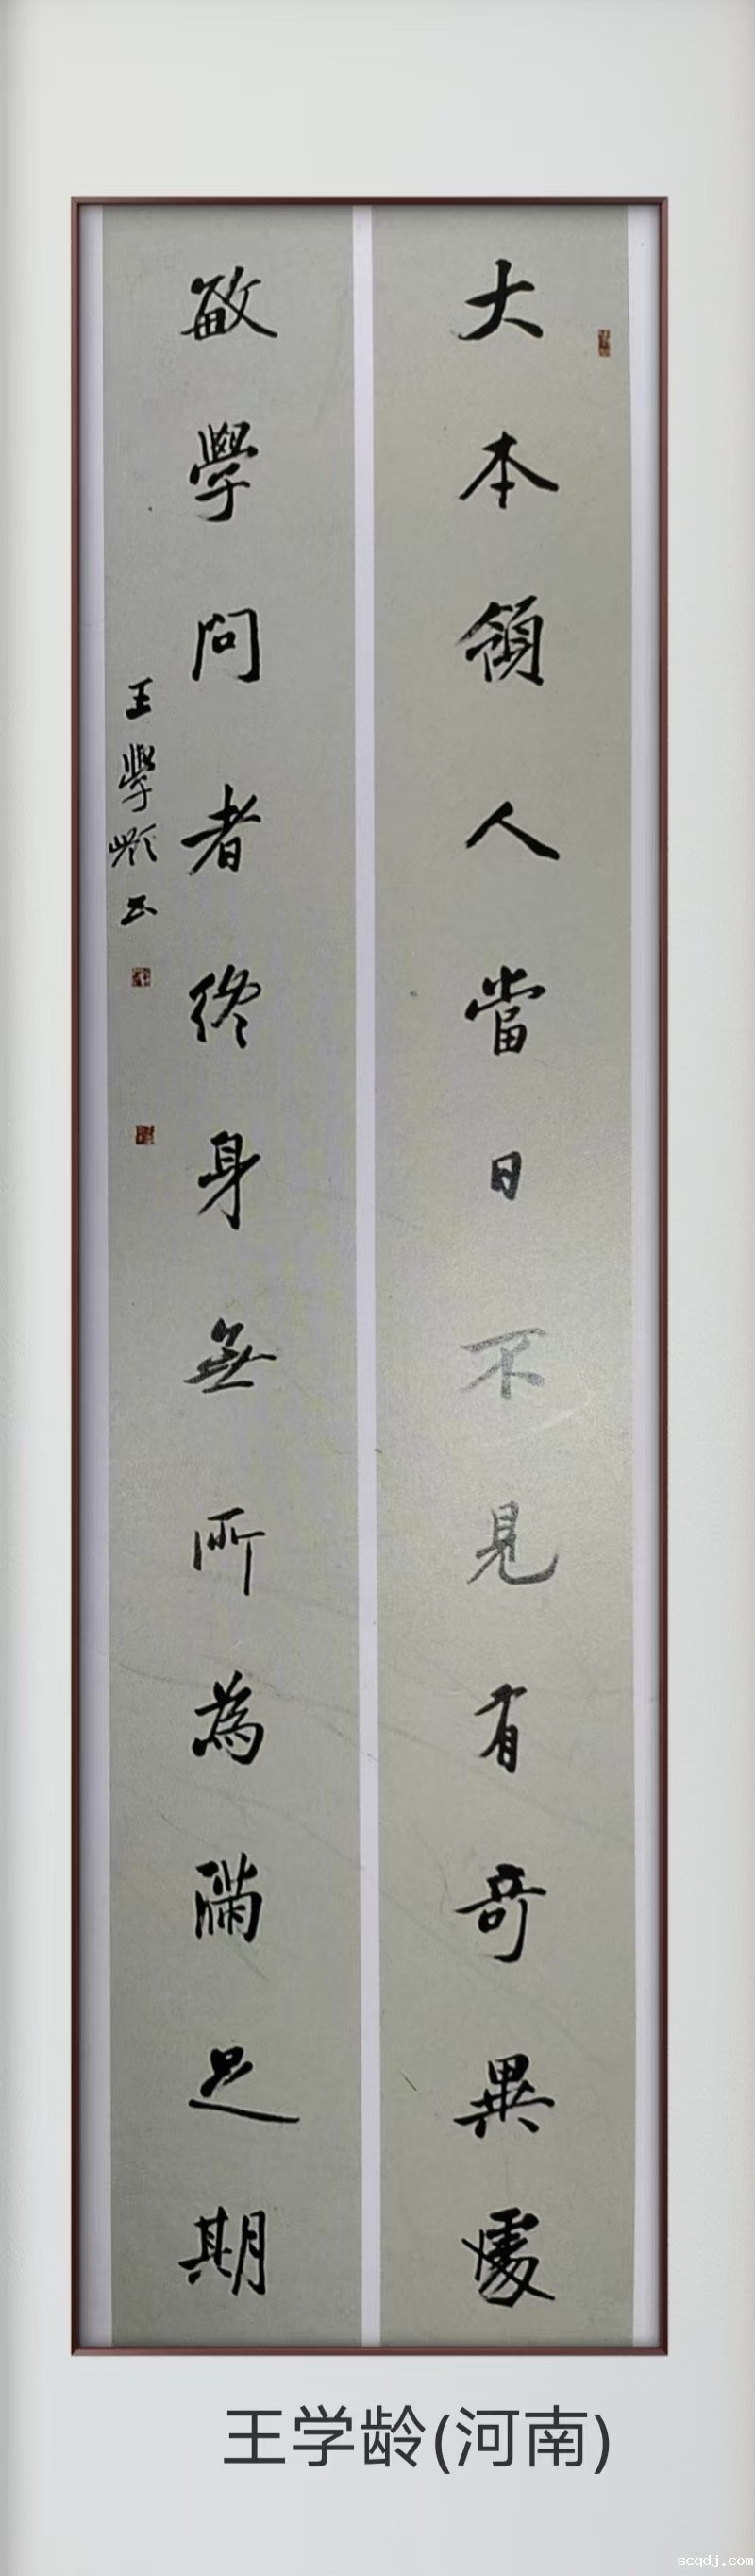 大本領人當日不見有奇異處
敏學問者終身無所為滿足期
王學齡书
王学龄(河南)
scqdj.com